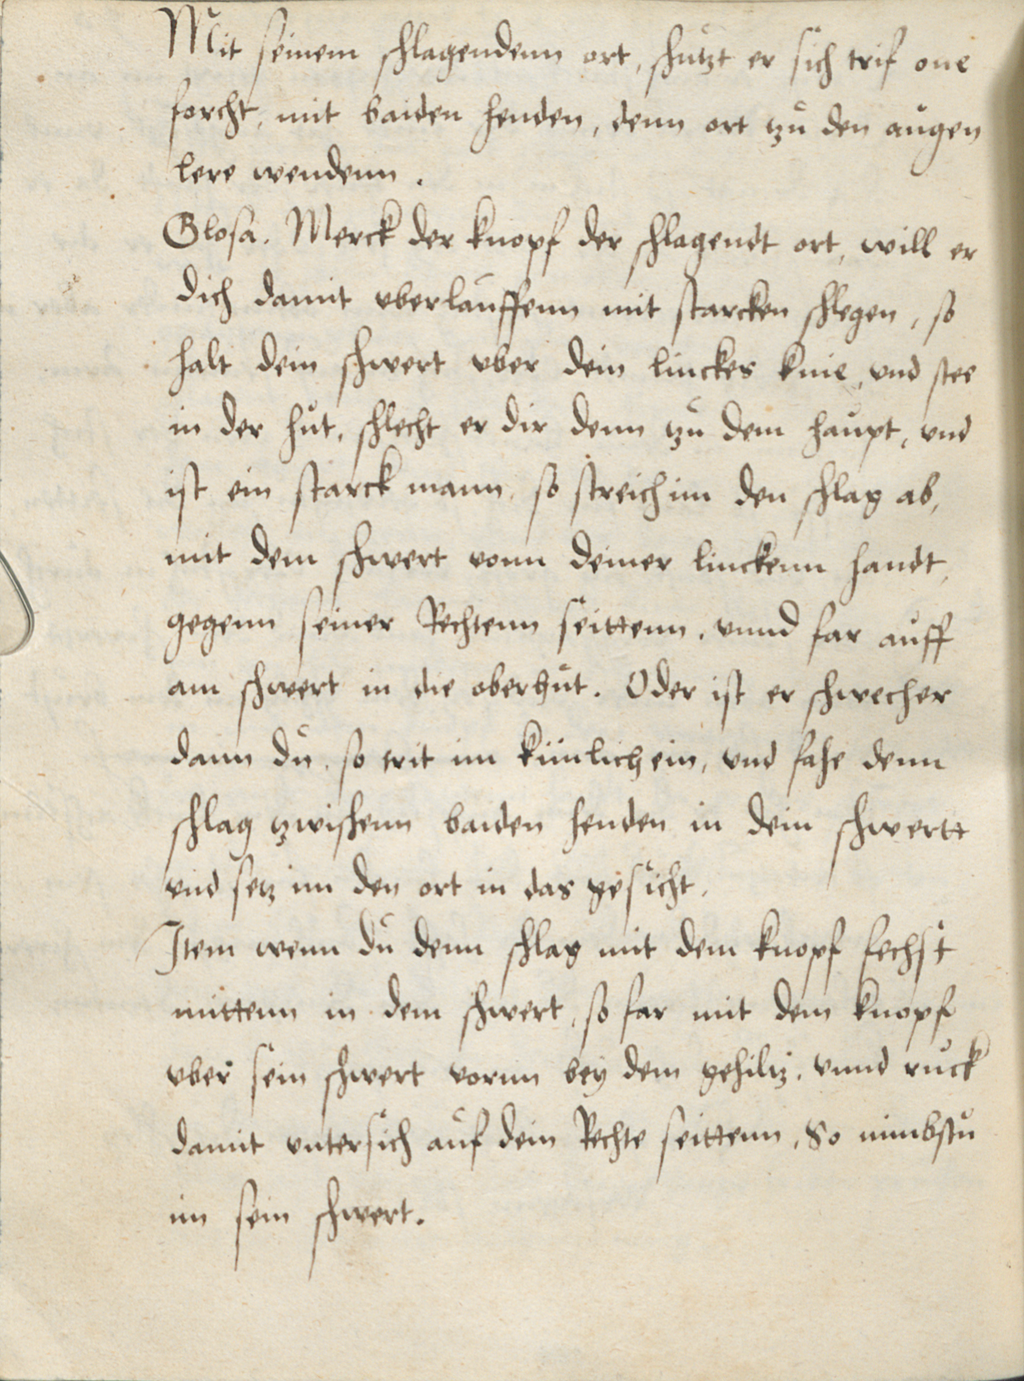 Mit seinem schlagendenn ort, schutzt er sich trif one
forcht, mit baiden henden, denn ort zu den augen
lere wendenn.
Glosa. Merck der knopf der schlagendt ort, will er
dich damit vberlauffenn mit starcken schlegen, so
halt dein schwert vber dein linckes knie, vnd stee
in der hut, schlecht er dir denn zu dem haupt, vnd
ist ein starck mann, so streich im den schlag ab,
mit dem schwert vonn deiner linckenn handt,
gegenn seiner Rechtenn seittenn, vnnd far auff
am schwert in die oberhut. Oder ist er schwecher
dann du, so trit im künlich ein, vnd fahe denn
schlag zwischenn baiden henden in dein schwertt
vnd setz im den ort in das gesicht.
Item wenn du denn schlag mit dem knopf fechst
mittenn in dem schwert, so far mit dem knopf
vber sein schwert vornn bey dem gehiltz, vnnd ruck
damit vntersich auf dein Rechte seittenn, So nimbstu
im sein schwert.